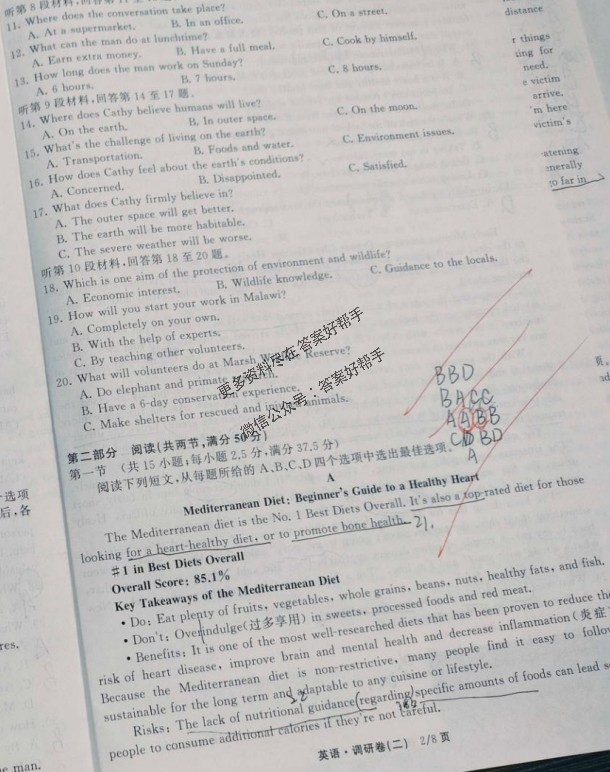 11. Where does the conversation take place?
A. At a supermarket. B. In an office. C. On a street.
12. What can the man do at lunchtime?
A. Earn extra money. B. Have a full meal. C. Cook by himself.
13. How long does the man work on Sunday?
A. 6 hours. B. 7 hours. C. 8 hours.
听第9段材料,回答第14至17题。
14. Where does Cathy believe humans will live?
A. On the earth. B. In outer space. C. On the moon.
15. What's the challenge of living on the earth?
A. Transportation. B. Foods and water. C. Environment issues.
16. How does Cathy feel about the earth's conditions?
A. Concerned. B. Disappointed. C. Satisfied.
17. What does Cathy firmly believe in?
A. The outer space will get better.
B. The earth will be more habitable.
C. The severe weather will be worse.
听第10段材料,回答第18至20题。
18. Which is one aim of the protection of environment and wildlife?
A. Economic interest. B. Wildlife knowledge. C. Guidance to the locals.
19. How will you start your work in Malawi?
A. Completely on your own.
B. With the help of experts.
C. By teaching other volunteers.
20. What will volunteers do at Marsh Reserve?
A. Do elephant and primate
B. Have a 6-day conservation experience.
C. Make shelters for rescued and animals.
更多资料尽在:答案好帮手
微信公众号:答案好帮手
第二部分 阅读(共两节,满分50分)
第一节 (共15小题;每小题2.5分,满分37.5分)
阅读下列短文,从每题所给的A、B、C、D四个选项中选出最佳选项。
BBD
BACC
AABB
BD
A
A
Mediterranean Diet: Beginner's Guide to a Healthy Heart
The Mediterranean diet is the No. 1 Best Diets Overall. It's also a top-rated diet for those
looking for a heart-healthy diet, or to promote bone health. 21.
#1 in Best Diets Overall
Overall Score: 85.1%
Key Takeaways of the Mediterranean Diet
• Do: Eat plenty of fruits, vegetables, whole grains, beans, nuts, healthy fats, and fish.
• Don't: Overindulge(过多享用) in sweets, processed foods and red meat.
• Benefits: It is one of the most well-researched diets that has been proven to reduce the
risk of heart disease, improve brain and mental health and decrease inflammation(炎症
Because the Mediterranean diet is non-restrictive, many people find it easy to follow
sustainable for the long term and adaptable to any cuisine or lifestyle.
Risks: The lack of nutritional guidance(regarding)specific amounts of foods can lead
people to consume additional calories if they're not careful.
英语·调研卷(二) 2/8页
distance
r things
ing for
need.
e victim
arrive.
'm here
victim's
atening
enerally
go far in
页。
选项
后,各
res.
e man.